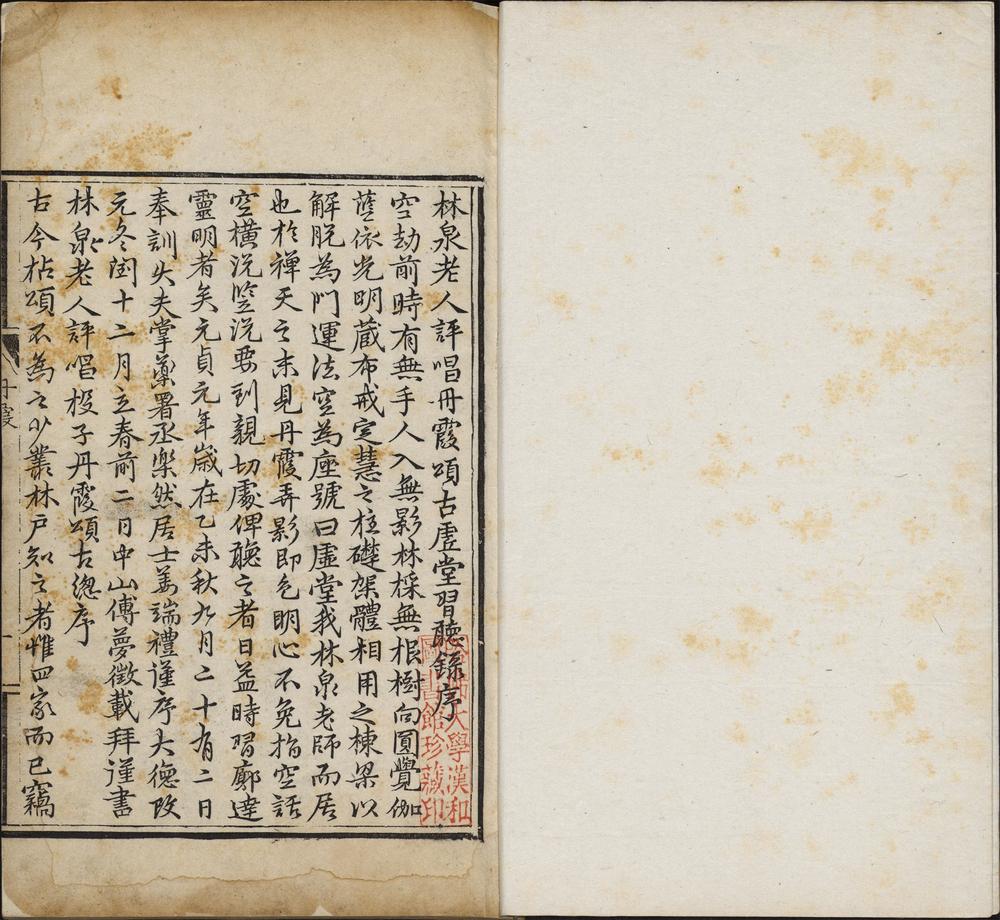 林泉老人評唱丹霞頌古虛堂習聽錄序
空劫前時有無手人入無影林採無根樹向圓覺伽
藍依光明藏布戒定慧之柱礎架體相用之棟梁以
解脫為門運法空為座號曰虛堂我林泉老師而居
也於禪天之未見丹霞弄影即色明心不免指空話
空橫說竖說要到親切處俾聽之者日益時習廓達
靈明者矣元貞元年歲在乙未秋九月二十有二日
奉訓大夫掌藥署丞樂然居士姜端禮謹序大德改
元冬閏十二月立春前二日中山傅夢徵載拜謹書
林泉老人評唱投子丹霞頌古總序
古今拈頌不為之少叢林戶知之者惟四家而已竊
丹霞
一
哈佛大學漢和
圖書館珍藏印